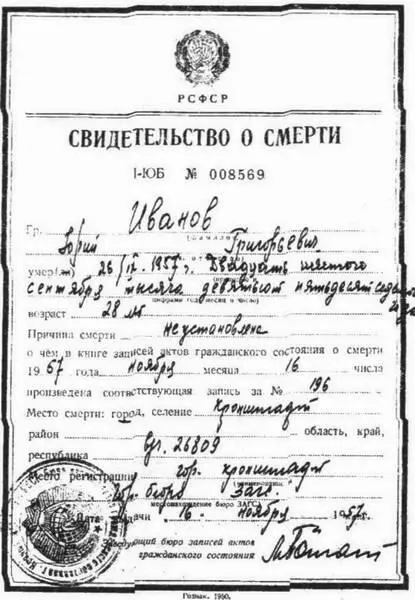 РСФСР
СВИДЕТЕЛЬСТВО О СМЕРТИ
I-ЮБ № 008569
Гр. Иванов
(фамилия)
Юрий Григорьевич
умер(ла) 26/IX.1957г. Двадцать шестого
сентября тысяча девятьсот пятьдесят седьмого
(цифрами год, месяц и число)
возраст 28 лет
Причина смерти неустановлена
о чём в книге записей актов гражданского состояния о смерти
1957 года ноября месяца 16 числа
произведена соответствующая запись за № 196
Место смерти: город, селение Кронштадт
район область, край,
республика 26809
Место регистрации гор. Кронштадт
бюро Загс
местонахождение бюро ЗАГС
Дата выдачи 16 ноября 1957 г.
Заведующий бюро записей актов
гражданского состояния
Гознак. 1950.